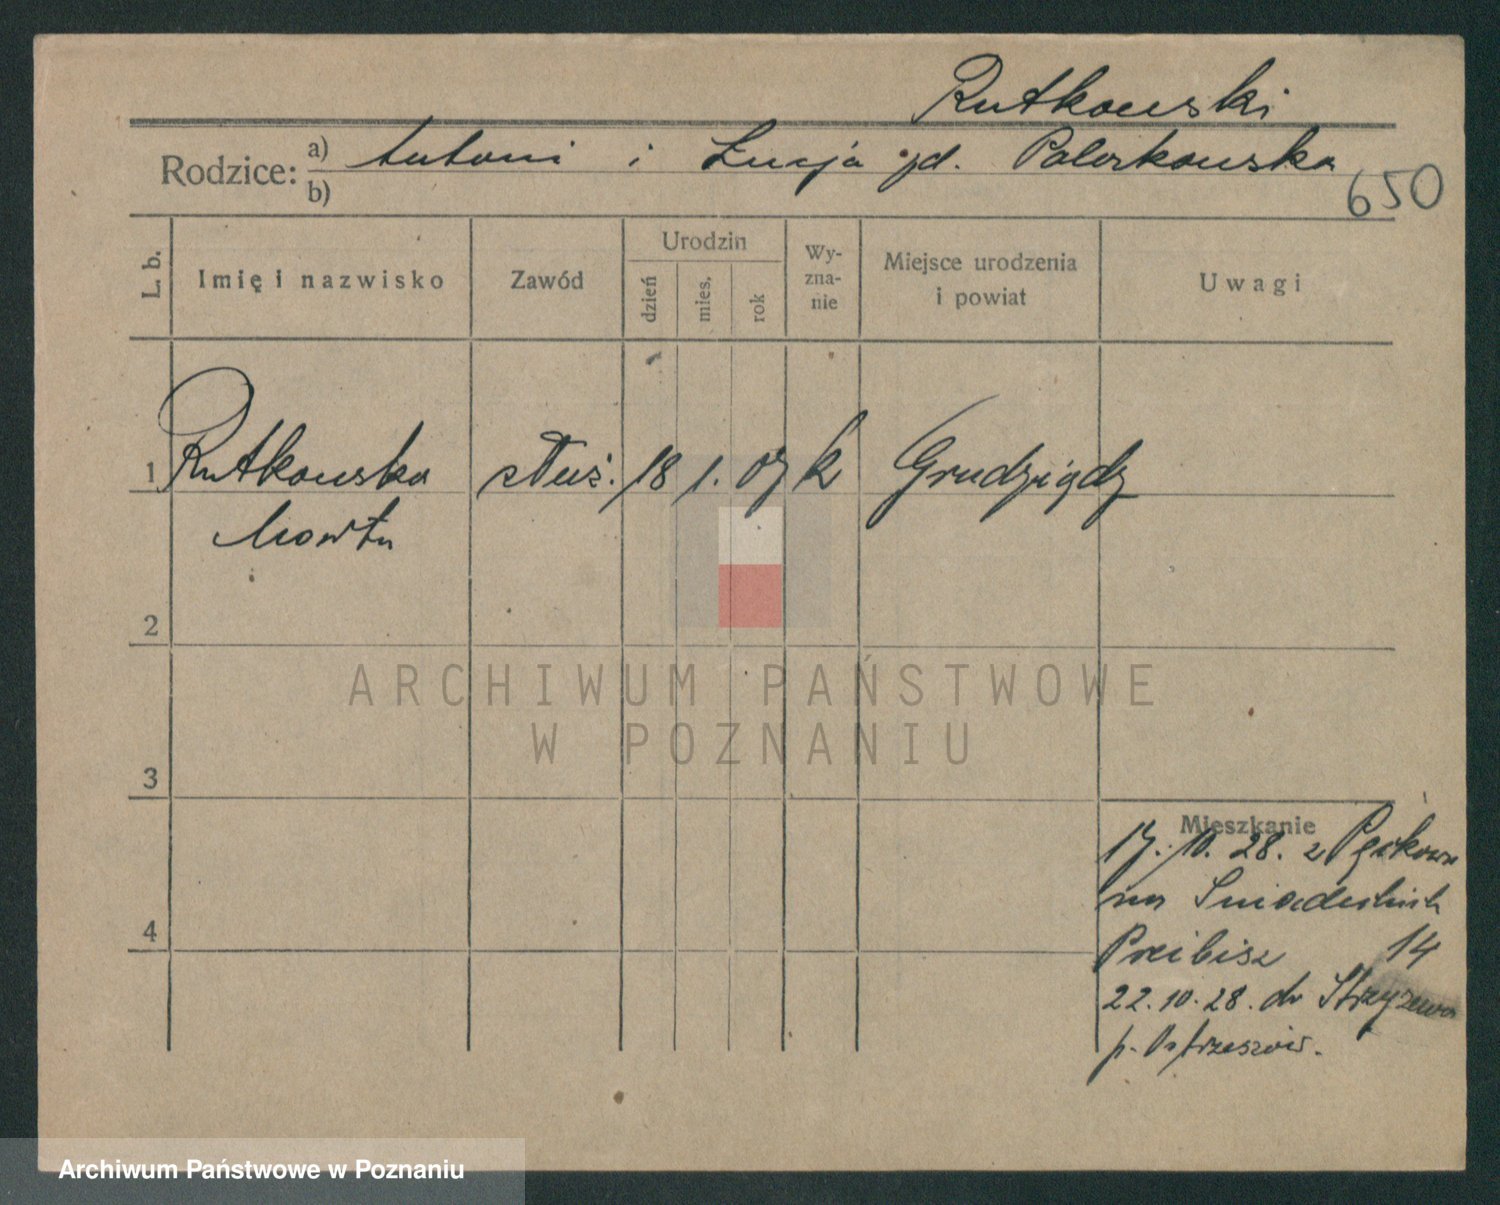 Rutkowski
Rodzice: a) Antoni i Lucja zd.
b)
650
L. b.
Imię i nazwisko
Zawód
Urodzin
dzień
mies.
rok
Wy-
zna-
nie
Miejsce urodzenia
i powiat
Uwagi
1 Rutkowska służ. 18 1. 07 k Grudziądz
Marta
2
3
4
Mieszkanie
17. 10. 28. z
na Śniadeckich
Preibisz 14
22. 10. 28. do Strzyżewa
p. Ostrzeszów.
ARCHIWUM PAŃSTWOWE
W POZNANIU
Archiwum Państwowe w Poznaniu